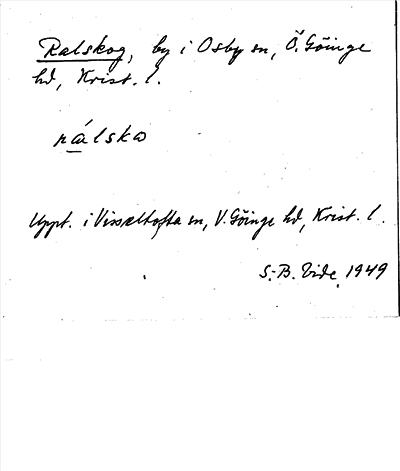 Ralskog, by i Osby sn, Ö. Göinge
hd, Krist. l.
rálsko
Uppt. i Visseltofta sn, V. Göinge hd, Krist. l.
S.-B. Vide 1949